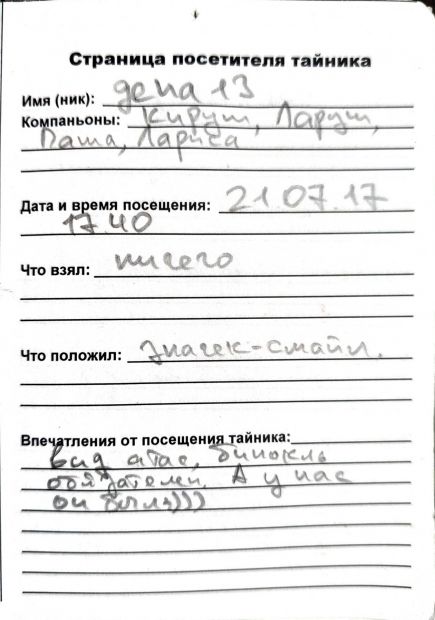 Страница посетителя тайника
Имя (ник): дена 13
Компаньоны: Кируш, Ларуш,
Паша, Лариса
Дата и время посещения: 21.07.17
17.40
Что взял: ничего
Что положил: значек-смайл.
Впечатления от посещения тайника:
вид атас, бинокль
обязателен. А у нас
он был)))